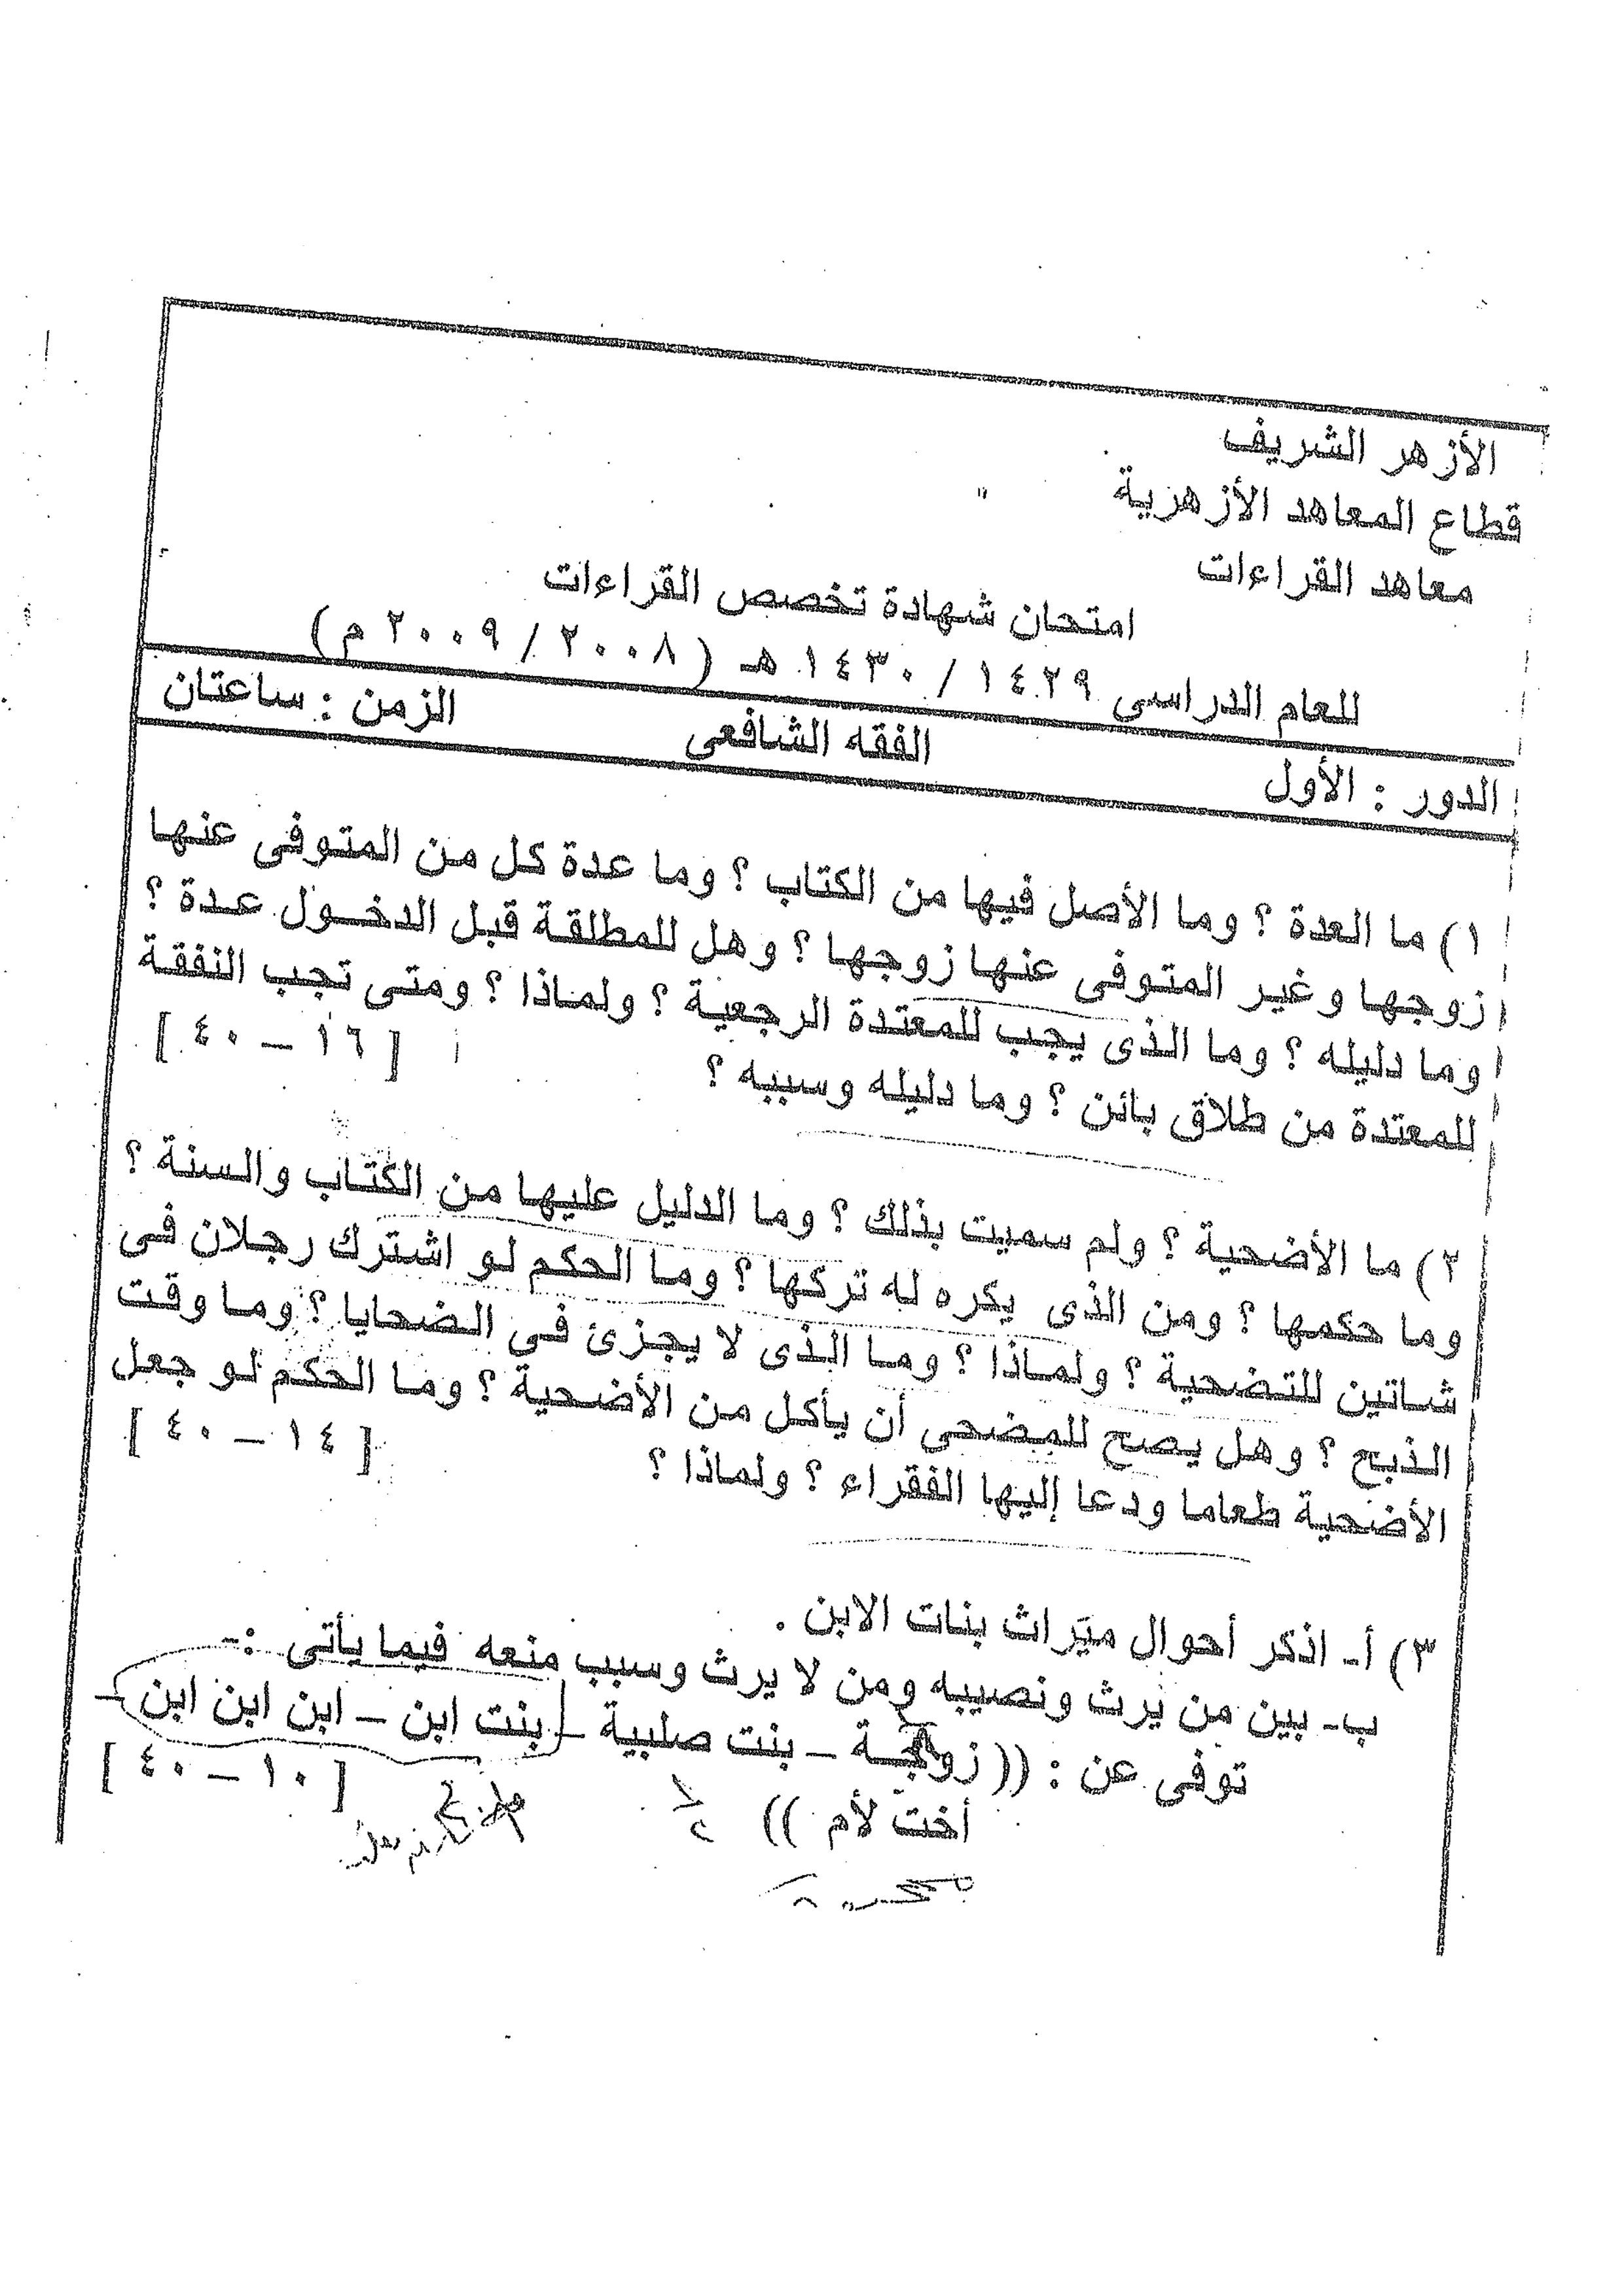 الأزهر الشريف
قطاع المعاهد الأزهرية
معاهد القراءات
امتحان شهادة تخصص القراءات
للعام الدراسى ١٤٢٩ / ١٤٣٠ هـ ( ٢٠٠٨ / ٢٠٠٩ م )
الدور : الأول الفقه الشافعى الزمن : ساعتان
١) ما العدة ؟ وما الأصل فيها من الكتاب ؟ وما عدة كل من المتوفى عنها
زوجها وغير المتوفى عنها زوجها ؟ وهل للمطلقة قبل الدخول عدة ؟
وما دليله ؟ وما الذى يجب للمعتدة الرجعية ؟ ولماذا ؟ ومتى تجب النفقة
للمعتدة من طلاق بائن ؟ وما دليله وسببه ؟ [ ١٦ – ٤٠ ]
٢) ما الأضحية ؟ ولم سميت بذلك ؟ وما الدليل عليها من الكتاب والسنة ؟
وما حكمها ؟ ومن الذى يكره له تركها ؟ وما الحكم لو اشترك رجلان فى
شاتين للتضحية ؟ ولماذا ؟ وما الذى لا يجزئ فى الضحايا ؟ وما وقت
الذبح ؟ وهل يصح للمضحى أن يأكل من الأضحية ؟ وما الحكم لو جعل
الأضحية طعاما ودعا إليها الفقراء ؟ ولماذا ؟ [ ١٤ – ٤٠ ]
٣) أ- اذكر أحوال ميراث بنات الابن .
ب- بين من يرث ونصيبه ومن لا يرث وسبب منعه فيما يأتى :-
توفى عن : (( زوجة – بنت صلبية – بنت ابن – ابن ابن ابن –
أخت لأم )) [ ١٠ – ٤٠ ]